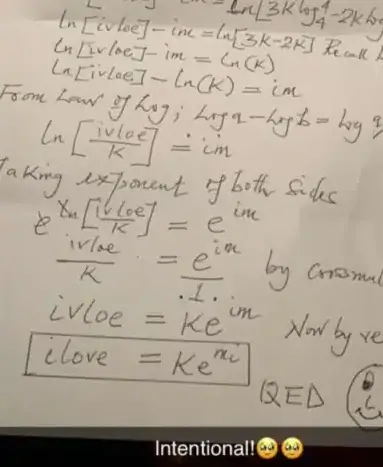 ln[3K log₄⁴ - 2K log
ln[ivloe] - im = ln[3K-2K] Recall
ln[ivloe] - im = ln(K)
ln[ivloe] - ln(K) = im
From Law of log; log a - log b = log a
ln[ivloe/K] = im
Taking exponent of both sides
e^ln[ivloe/K] = e^im
ivloe/K = e^im/1 by crossmul
ivloe = Ke^im Now by re
ilove = Ke^mi
QED
Intentional!🥹🥹